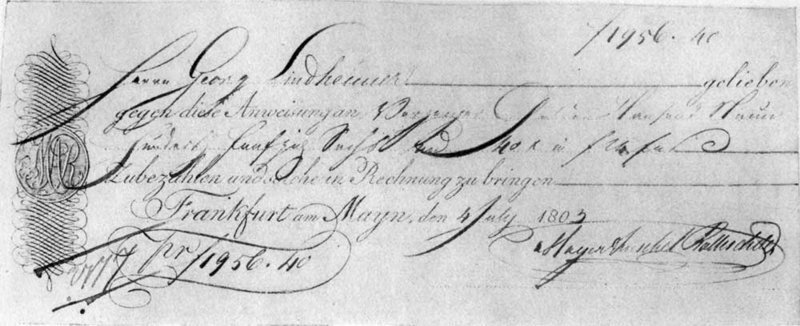 f 1956. 40
Herrn Georg Lindheimer gelieben
gegen diese Anweisung an Vorzeiger Ein Tausend Neun
Hundert Fünfzig Sechs und 40 x in
MAR
zu bezahlen und solche in Rechnung zu bringen
Frankfurt am Mayn, den 4 July 1803
pr f 1956. 40
Mayer Amschel Rothschild